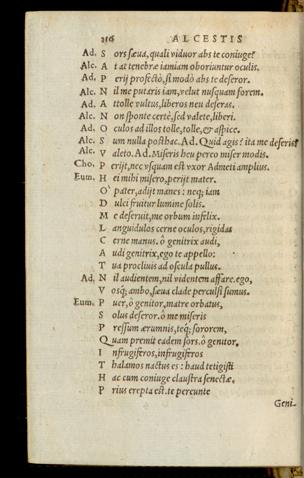 216 ALCESTIS
Ad. S ors sæua, quali viduor abs te coniuge?
Alc. A t at tenebræ iamiam oboriuntur oculis.
Ad. P erij profectò, si modò abs te deseror.
Alc. N il me putaris iam, velut nusquam forem.
Ad. A ttolle vultus, liberos neu deseras.
Alc. N on sponte certè, sed valete, liberi.
Ad. O culos ad illos tolle, tolle, & aspice.
Alc. S um nulla posthac. Ad. Quid agis? ita me deseris?
Alc. V aleto. Ad. Miseris heu perco miser modis.
Cho. P erijt, nec vsquam est vxor Admeti amplius.
Eum. H ei mihi misero, perijt mater.
O' pater, adijt manes: neq; iam
D ulci fruitur lumine solis.
M e deseruit, me orbum infelix.
L anguidulos cerne oculos, rigidas
C erne manus. ô genitrix audi,
A udi genitrix, ego te appello:
T ua procliuis ad oscula pullus.
Ad. N il audientem, nil videntem affare. ego,
V osq; ambo, sæua clade perculsi sumus.
Eum. P uer, ô genitor, matre orbatus,
S olus deseror. ô me miseris
P ressum ærumnis, teq; sororem,
Q uam premit eadem sors. ô genitor.
I nfrugiferos, infrugiferos
T halamos nactus es: haud tetigisti
H ac cum coniuge claustra senectæ.
P rius erepta est. te pereunte
Geni-